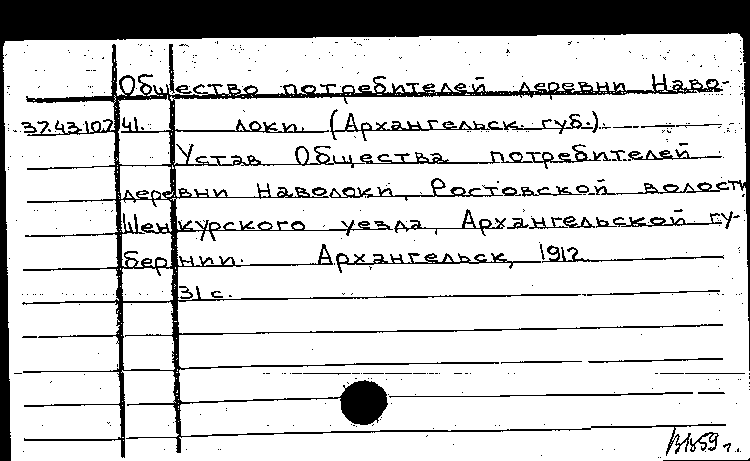 Общество потребителей деревни Наво-
37.43.107 41. локи. (Архангельск. губ.).
Устав Общества потребителей
деревни Наволоки, Ростовской волости
Шенкурского уезда, Архангельской гу-
бернии. Архангельск, 1912
31 с.